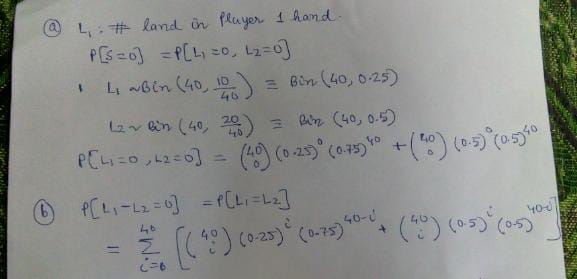 (a) L₁ : # land in Player 1 hand.
P[S=0] = P[L₁=0, L2=0]
L₁ ~ Bin (40, 10/40) ≡ Bin (40, 0.25)
L2 ~ Bin (40, 20/40) ≡ Bin (40, 0.5)
P[L₁=0, L2=0] = (40 0) (0.25)⁰ (0.75)⁴⁰ + (40 0) (0.5)⁰ (0.5)⁴⁰
(b) P[L₁-L2=0] = P[L₁=L2]
= Σ_{i=0}^{40} [(40 i) (0.25)^i (0.75)^{40-i} + (40 i) (0.5)^i (0.5)^{40-i}]